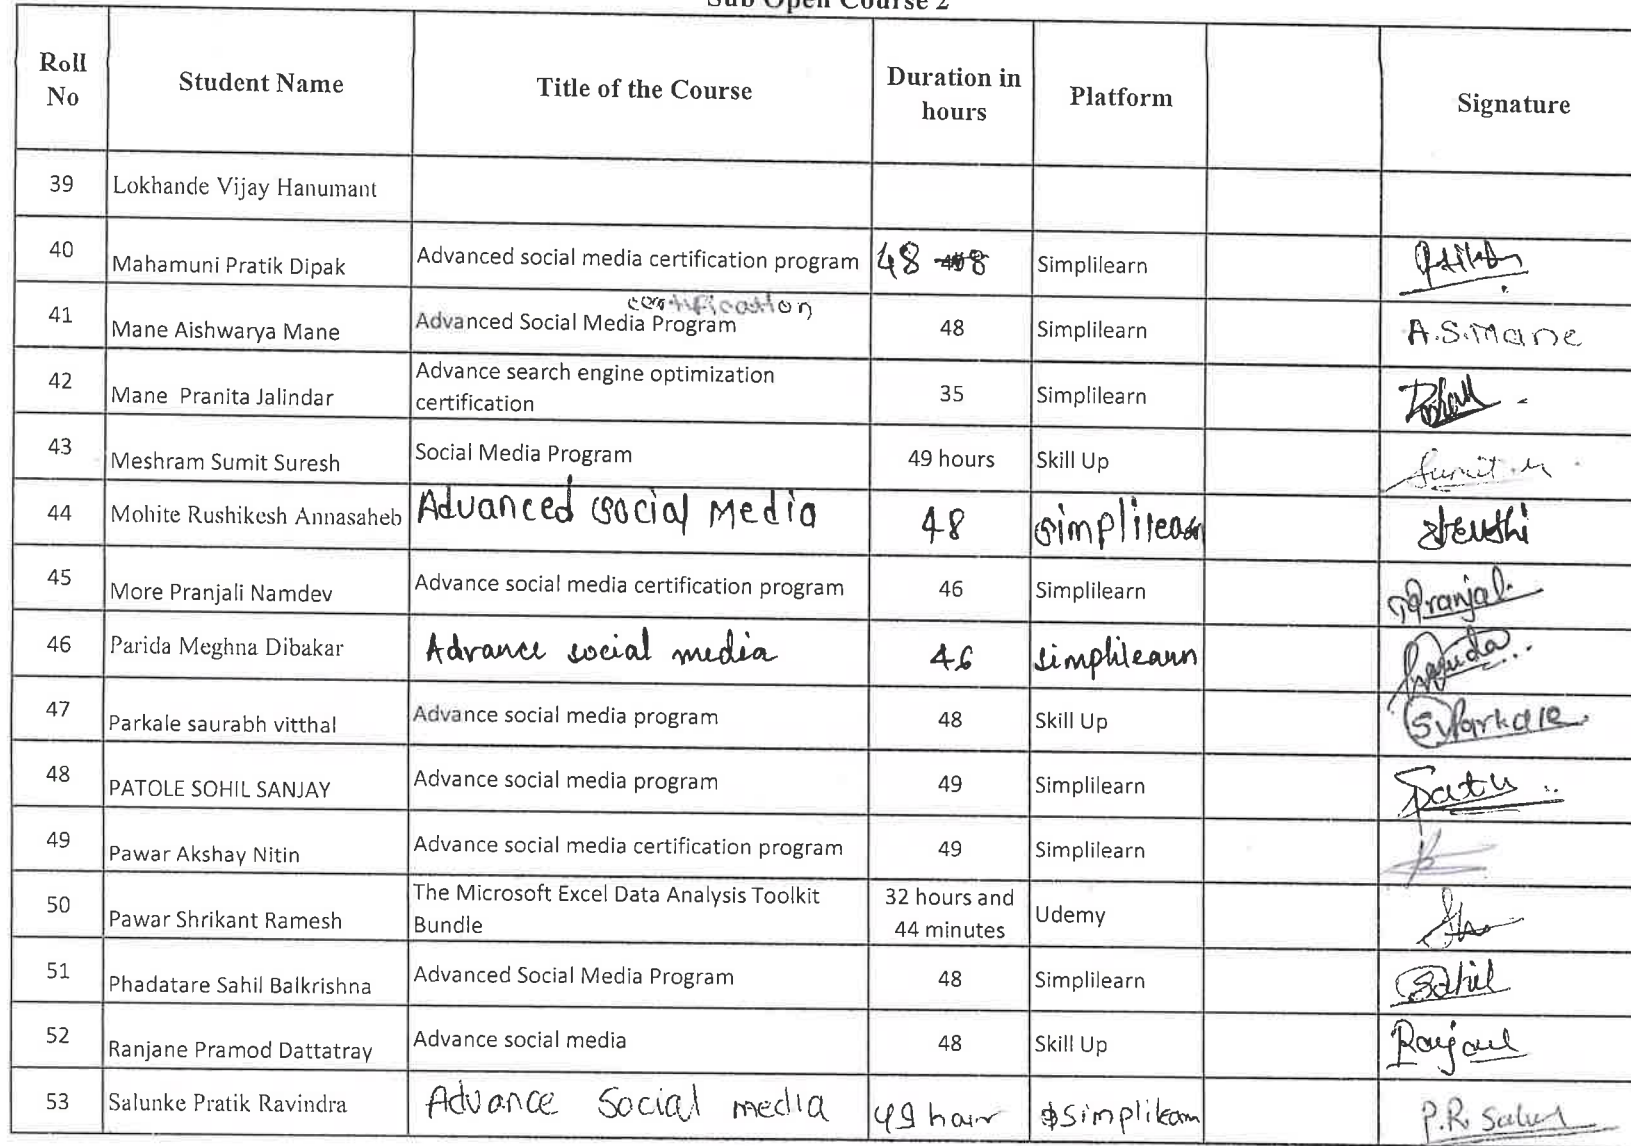 Sub Open Course 2
Roll No Student Name Title of the Course Duration in hours Platform Signature
39 Lokhande Vijay Hanumant
40 Mahamuni Pratik Dipak Advanced social media certification program 48 Simplilearn
certification
41 Mane Aishwarya Mane Advanced Social Media Program 48 Simplilearn A.S.Mane
42 Mane Pranita Jalindar Advance search engine optimization certification 35 Simplilearn
43 Meshram Sumit Suresh Social Media Program 49 hours Skill Up Sumit.M
44 Mohite Rushikesh Annasaheb Advanced social Media 48 simplilearn
45 More Pranjali Namdev Advance social media certification program 46 Simplilearn Pranjal
46 Parida Meghna Dibakar Advance social media 46 simplilearn
47 Parkale saurabh vitthal Advance social media program 48 Skill Up SVParkale
48 PATOLE SOHIL SANJAY Advance social media program 49 Simplilearn
49 Pawar Akshay Nitin Advance social media certification program 49 Simplilearn
50 Pawar Shrikant Ramesh The Microsoft Excel Data Analysis Toolkit Bundle 32 hours and 44 minutes Udemy
51 Phadatare Sahil Balkrishna Advanced Social Media Program 48 Simplilearn Sahil
52 Ranjane Pramod Dattatray Advance social media 48 Skill Up
53 Salunke Pratik Ravindra Advance Social media 49 hour Simplilearn P.R.